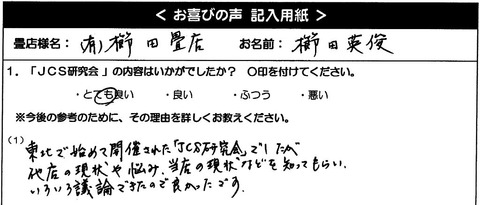 ＜ お喜びの声 記入用紙 ＞
畳店様名： (有)櫛田畳店 お名前： 櫛田英俊
1．「JCS研究会」の内容はいかがでしたか？ ○印を付けてください。
・とても良い ・良い ・ふつう ・悪い
※今後の参考のために、その理由を詳しくお教えください。
(1)
東北で始めて開催された「JCS研究会」でしたが
他店の現状や悩み、当店の現状などを知ってもらい、
いろいろ議論できたので良かったです。